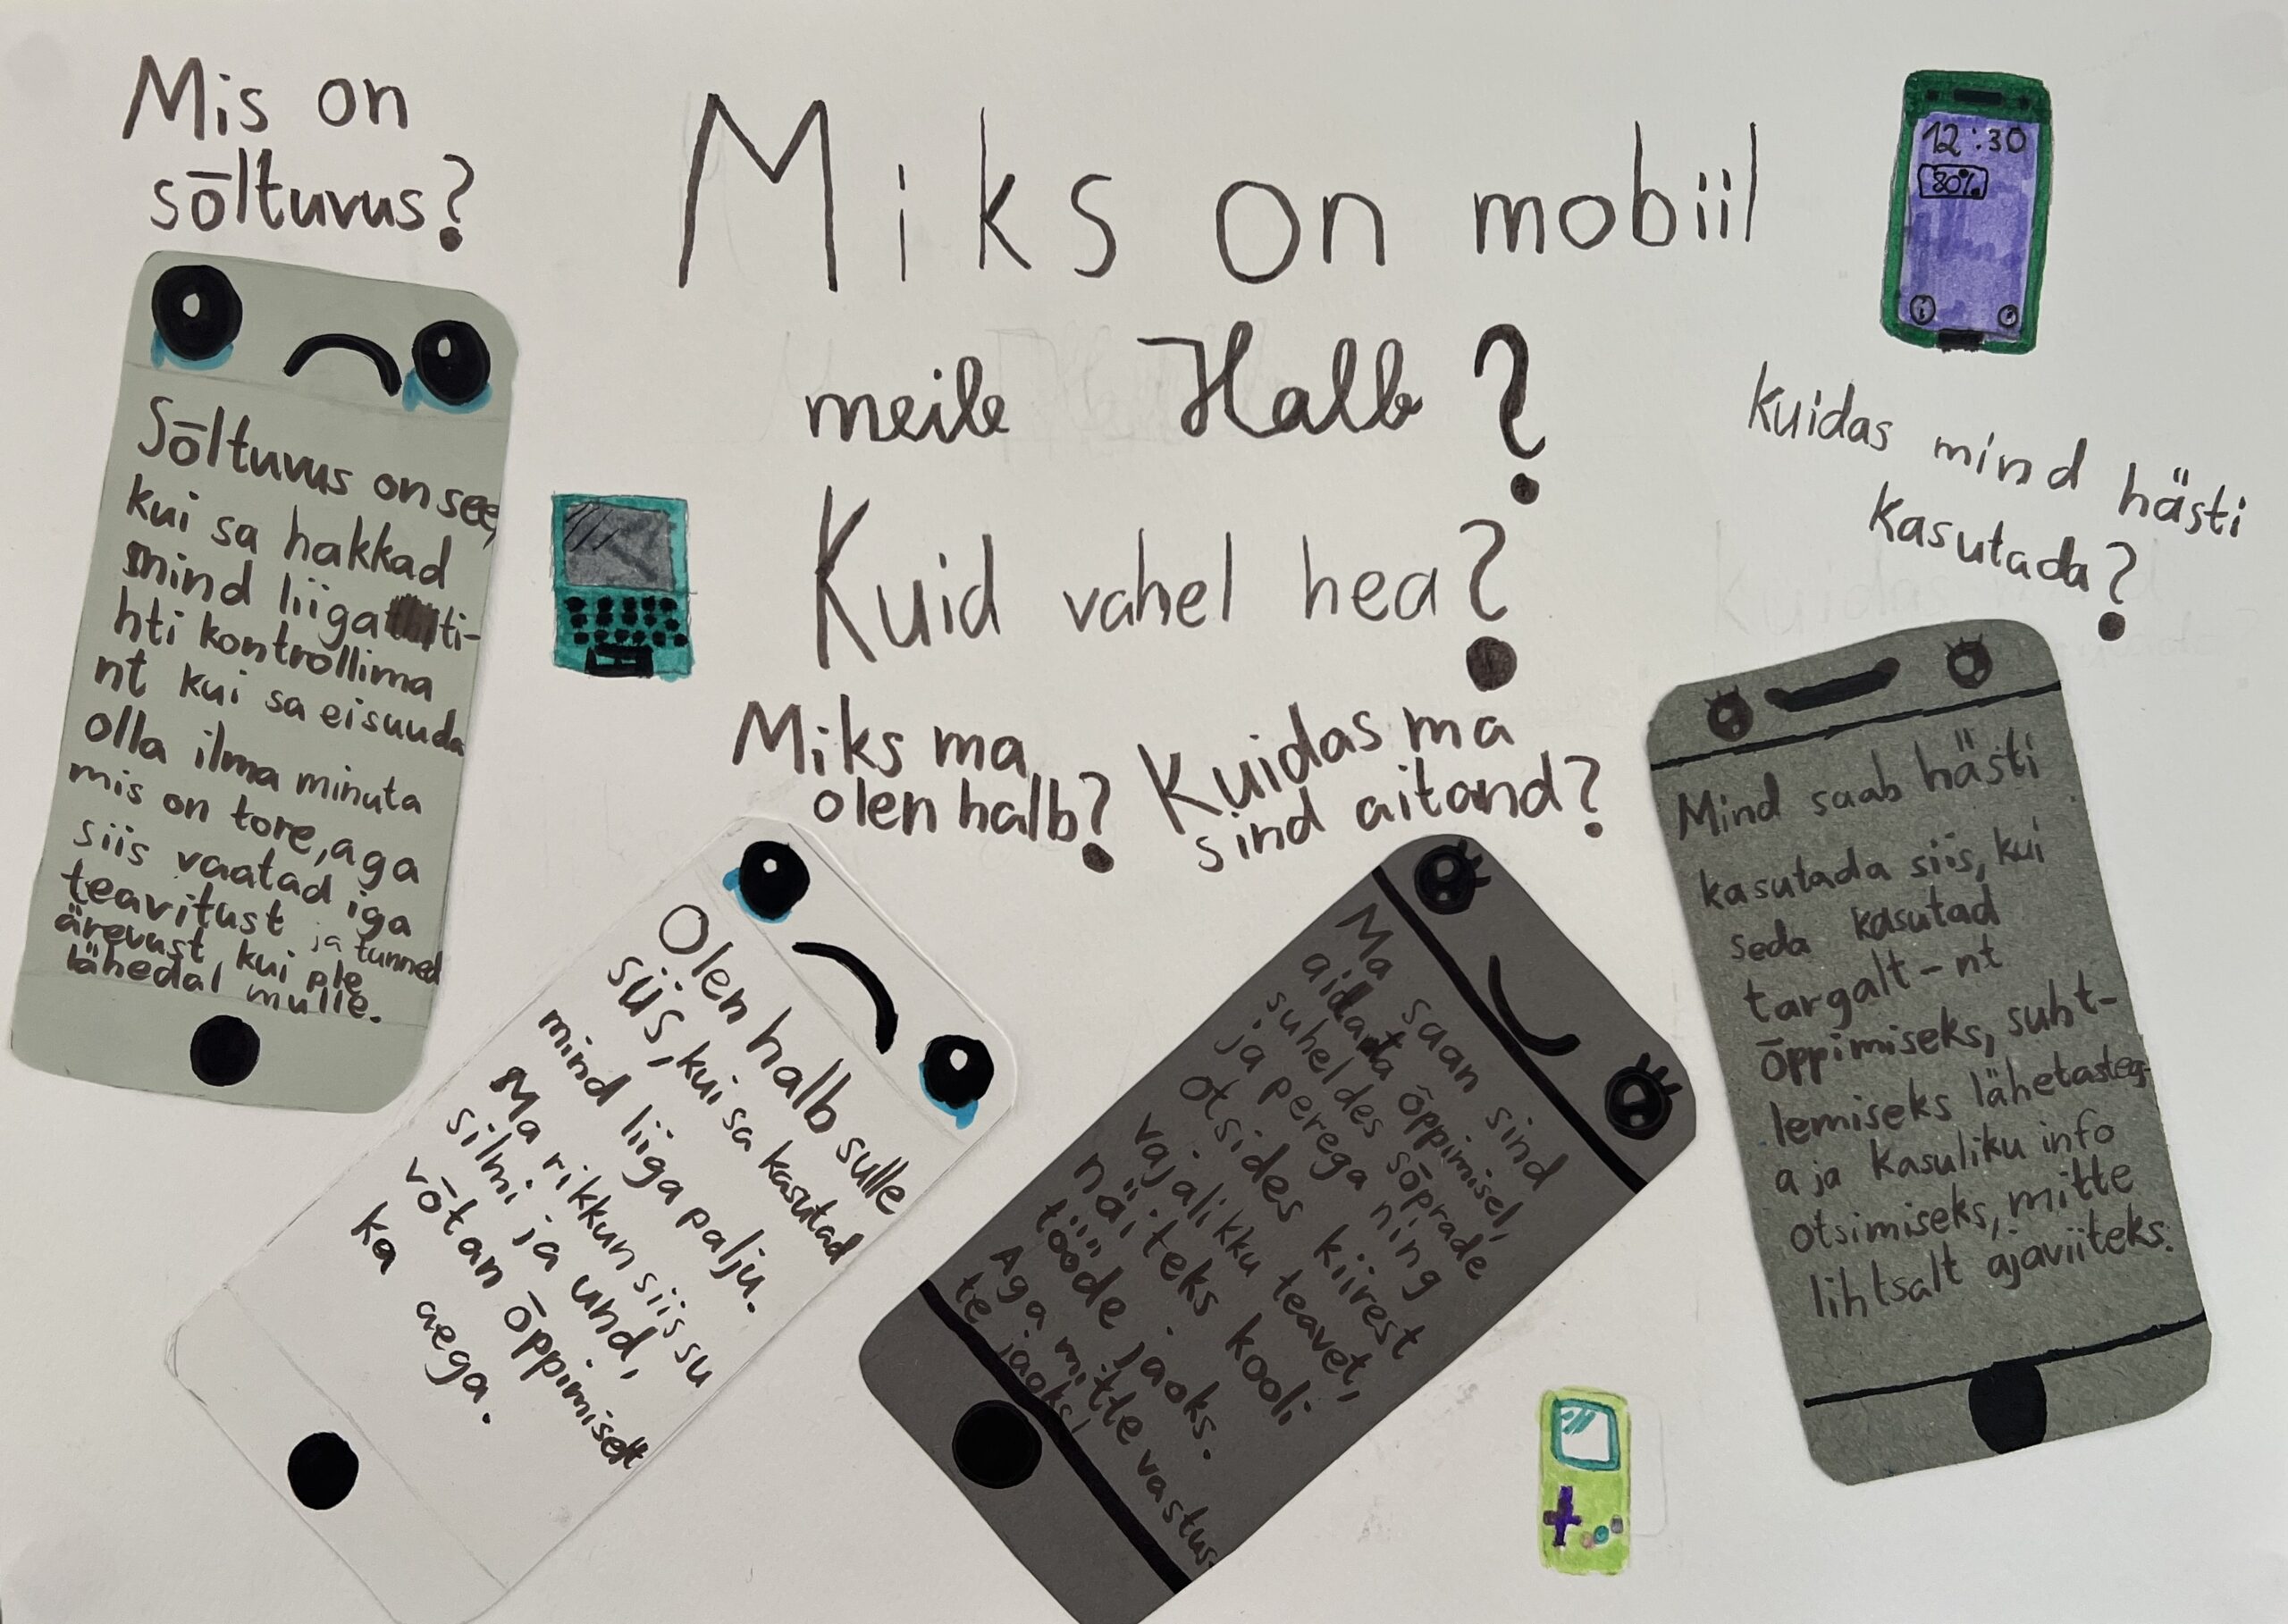 Mis on
sõltuvus?
Miks on mobiil
meile Halb?
Kuid vahel hea?
12:30
80%
Kuidas mind hästi
kasutada?
Miks ma
olen halb?
Kuidas ma
sind aitand?
Sõltuvus on see,
kui sa hakkad
mind liiga ti-
hti kontrollima
nt kui sa ei suuda
olla ilma minuta
mis on tore, aga
siis vaatad iga
teavitust ja tunned
ärevust kui ple
lähedal mulle.
Olen halb sulle
siis, kui sa kasutad
mind liiga palju.
Ma rikkun siis su
silmi ja und,
võtan õppimiselt
ka aega.
Ma saan sind
aidata õppimisel,
suheldes sõprade
ja perega ning
otsides kiirest
vajalikku teavet,
näiteks kooli
tööde jaoks.
Aga mitte vastus-
te jaoks!
Mind saab hästi
kasutada siis, kui
seda kasutad
targalt - nt
õppimiseks, suht-
lemiseks lähetasteg-
a ja kasuliku info
otsimiseks, mitte
lihtsalt ajaviiteks.